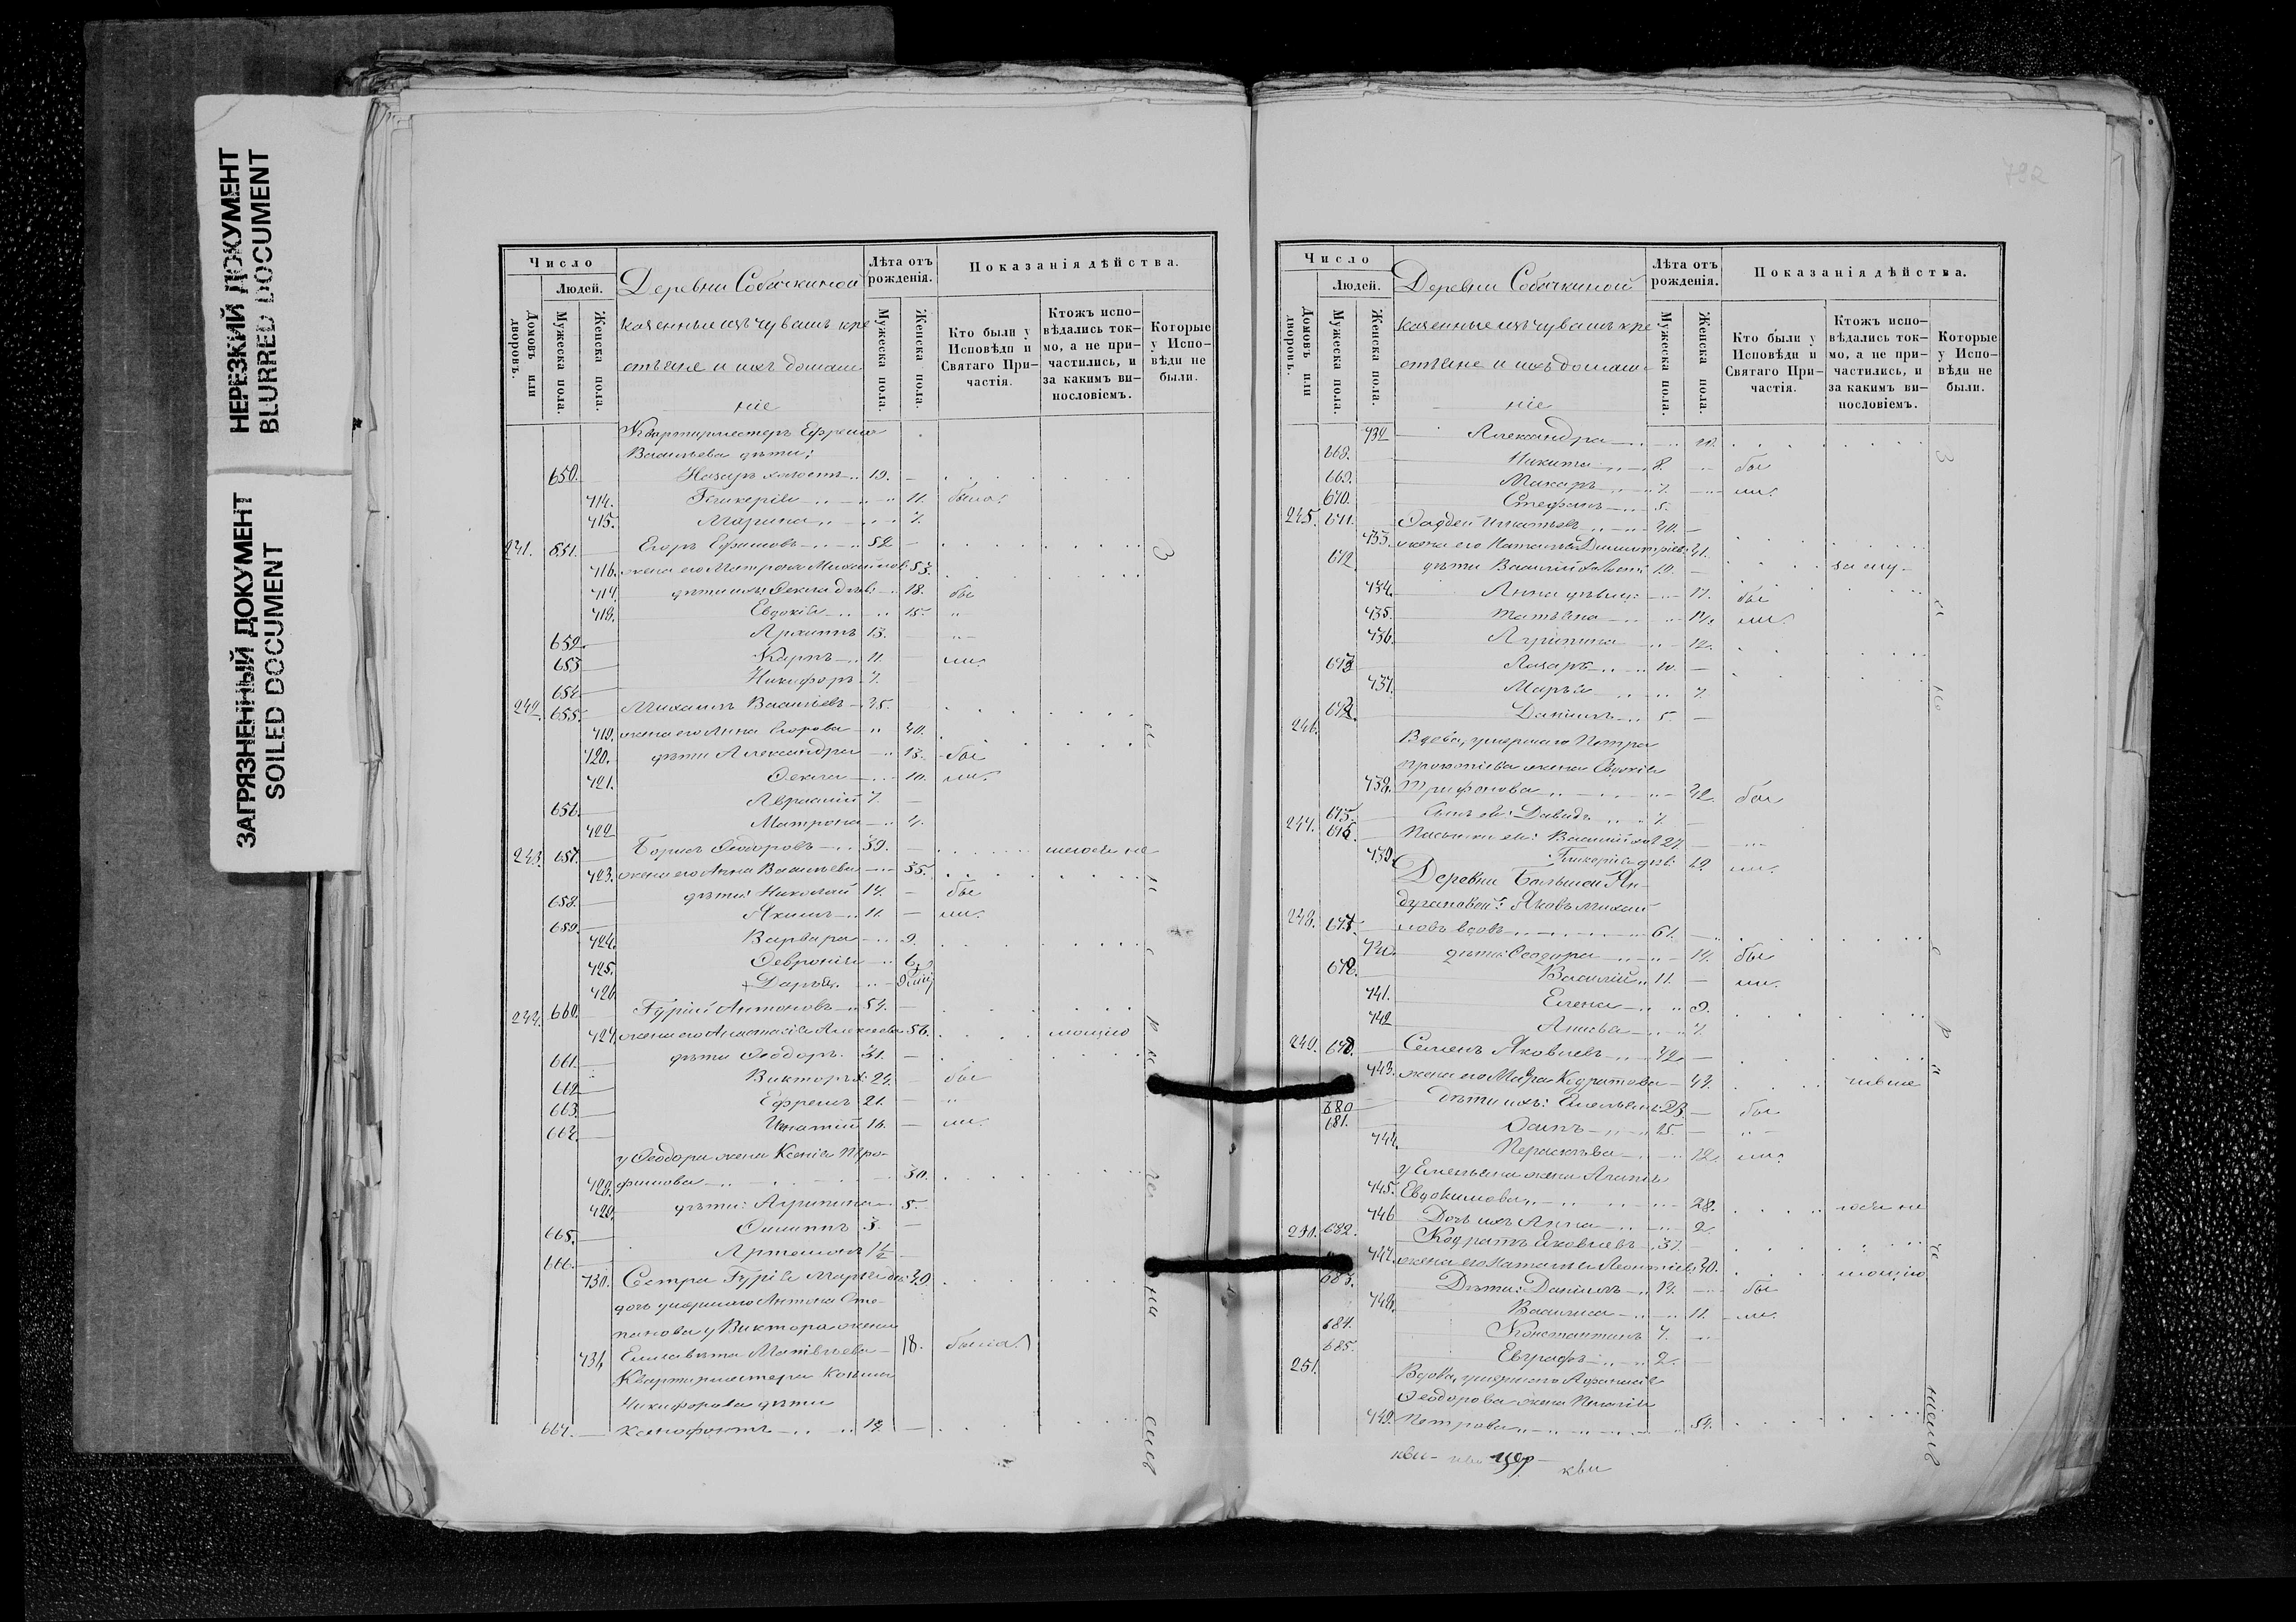 НЕРЕЗКИЙ ДОКУМЕНТ
BLURRED DOCUMENT
ЗАГРЯЗНЕННЫЙ ДОКУМЕНТ
SOILED DOCUMENT
Число
Людей.
Домовъ или дворовъ.
Мужеска пола.
Женска пола.
Деревни Собачкиной
казенные изъ чувашъ кре
стьяне и ихъ домаш
ніе
Лѣта отъ рожденія.
Мужеска пола.
Женска пола.
Показанія дѣйства.
Кто были у Исповѣди и Святаго При-частія.
Ктожъ испо-вѣдались ток-мо, а не при-частились, и за какимъ ви-нословіемъ.
Которые у Испо-вѣди не были.
Квартирмистера Ефрема
Васильева дѣти:
650. Назаръ холостъ 19.
714. Гликерія 11. была.
715. Марина 7.
241. 651. Егоръ Ефимовъ 52
716. жена его Матрона Михайлов: 53.
717. дѣти ихъ: Фекла дѣв: 18. бы
718. Евдокія 15.
652. Архипъ 13.
653. Карпъ 11. ли.
654. Никифоръ 7.
242. 655. Михаилъ Васильевъ 35.
719. жена его Анна Егорова 40.
720. дѣти Александра 13. бы
721. Фекла 10. ли.
656. Аврамій 7.
722 Матрона 4.
243. 657. Борисъ Ѳеодоровъ 39.
723. жена его Анна Васильева 35.
658. дѣти: Николай 14. бы
659. Якимъ 11. ли.
724. Варвара 9.
725. Февронія 6.
726 Дарья
244. 660. Гурій Антоновъ 54.
727. жена его Анастасія Алексеева 56.
661. дѣти Ѳеодоръ 31.
662 Викторъ 24. бы
663. Ефремъ 21.
664. Игнатій 16. ли.
у Ѳеодора жена Ксенія Тро-
728. фимова 30.
729. дѣти: Агрипина 5.
665. Филиппъ 3.
666. Артемонъ 1½
730. Сестра Гурія Марья дѣв: 40.
дочь умершаго Антона Сте-
панова у Виктора жена
731. Елисавета Матвѣева 18. была.
Квартирмистера Козьмы
Никифорова дѣти
667. Ксенофонтъ 14.
Число
Людей.
Домовъ или дворовъ.
Мужеска пола.
Женска пола.
Деревни Собачкиной
казенные изъ чувашъ кре
стьяне и ихъ домаш
ніе
Лѣта отъ рожденія.
Мужеска пола.
Женска пола.
Показанія дѣйства.
Кто были у Исповѣди и Святаго При-частія.
Ктожъ испо-вѣдались ток-мо, а не при-частились, и за какимъ ви-нословіемъ.
Которые у Испо-вѣди не были.
732 Александра
668. Никита 8. бы
669. Макаръ 7. ли.
670. Стефанъ 5.
245. 671. Ѳаддей Игнатьевъ 40.
733. жена его Наталья Димитріев: 41.
672 дѣти Василій холост: 19.
734. Анна дѣвиц: 17. бы
735. Татьяна 14. ли.
736. Агрипина 12.
673 Лазарь 10.
737. Марья 7.
674. Даніилъ 5.
246. Вдова, умершаго Петра
Прокопіева жена Евдокія
738. Трифонова 42. бы
675. Сынъ ея: Давидъ 7.
247. 676. Пасынки ея: Василій хол 24.
739. Гликерія дѣв: 19. ли.
Деревни Большой Ян-
дугановой: Яковъ Михай
248. 677. ловъ вдовъ 61.
740. дѣти: Ѳеодора 14. бы
678. Василій 11. ли.
741. Елена 9.
742 Анисья 7.
249. 679. Семенъ Яковлевъ 42.
743. жена его Мавра Кодратова 43.
680 Дѣти ихъ: Емельянъ 23. бы
681. Осипъ 15.
744. Параскева 12. ли.
у Емельяна жена Агапія
745. Евдокимова 28.
746 Дочь ихъ Анна 2.
250. 682. Кодратъ Яковлевъ 37.
747. жена его Наталья Леонтіев: 40.
683. Дѣти: Даніилъ 14. бы
748. Василиса 11. ли.
684. Константинъ 7.
685. Евграфъ 2.
251. Вдова, умершаго Афанасія
Ѳеодорова жена Пелагія
749. Петрова 54.